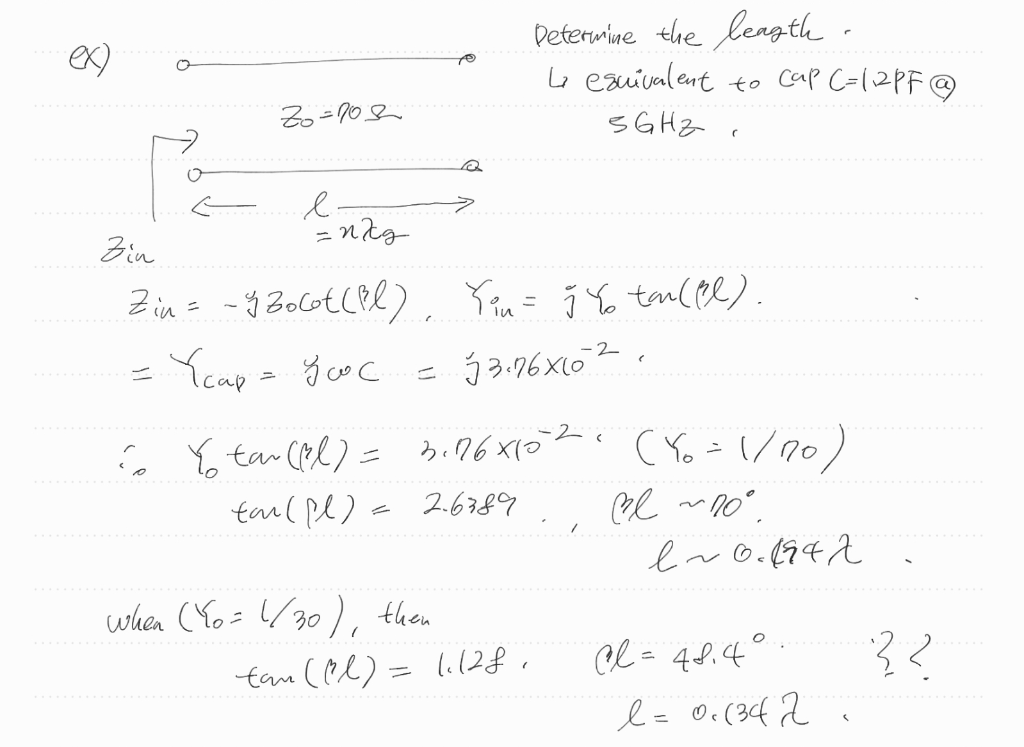 ex)
Determine the length.
↳ equivalent to cap C=1.2PF @
5GHz.
Z₀=70Ω
l
=nλg
Zin
Zin = -jZ₀cot(βl), Yin = jY₀ tan(βl).
= Ycap = jωC = j3.76×10⁻².
∴ Y₀ tan(βl) = 3.76×10⁻². (Y₀ = 1/70)
tan(βl) = 2.6389 ., βl ~70°.
l ~ 0.194λ.
when (Y₀= 1/30), then
tan(βl) = 1.128. βl = 48.4°. ??
l = 0.134λ.